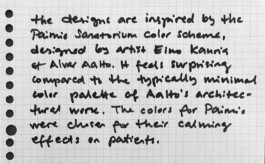 the designs are inspired by the
Paimio Sanatorium color scheme,
designed by artist Eino Kauria
& Alvar Aalto. It feels surprising
compared to the typically minimal
color palette of Aalto's architec-
tural work. The colors for Paimio
were chosen for their calming
effects on patients.